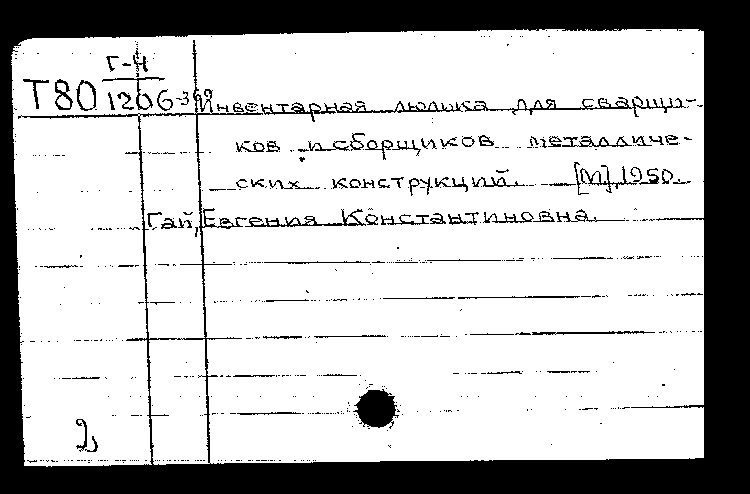 Г-4
Т80 1206-399 Инвентарная люлька для сварщи-
ков и сборщиков металличе-
ских конструкций. [М], 1950.
Гай, Евгения Константиновна.